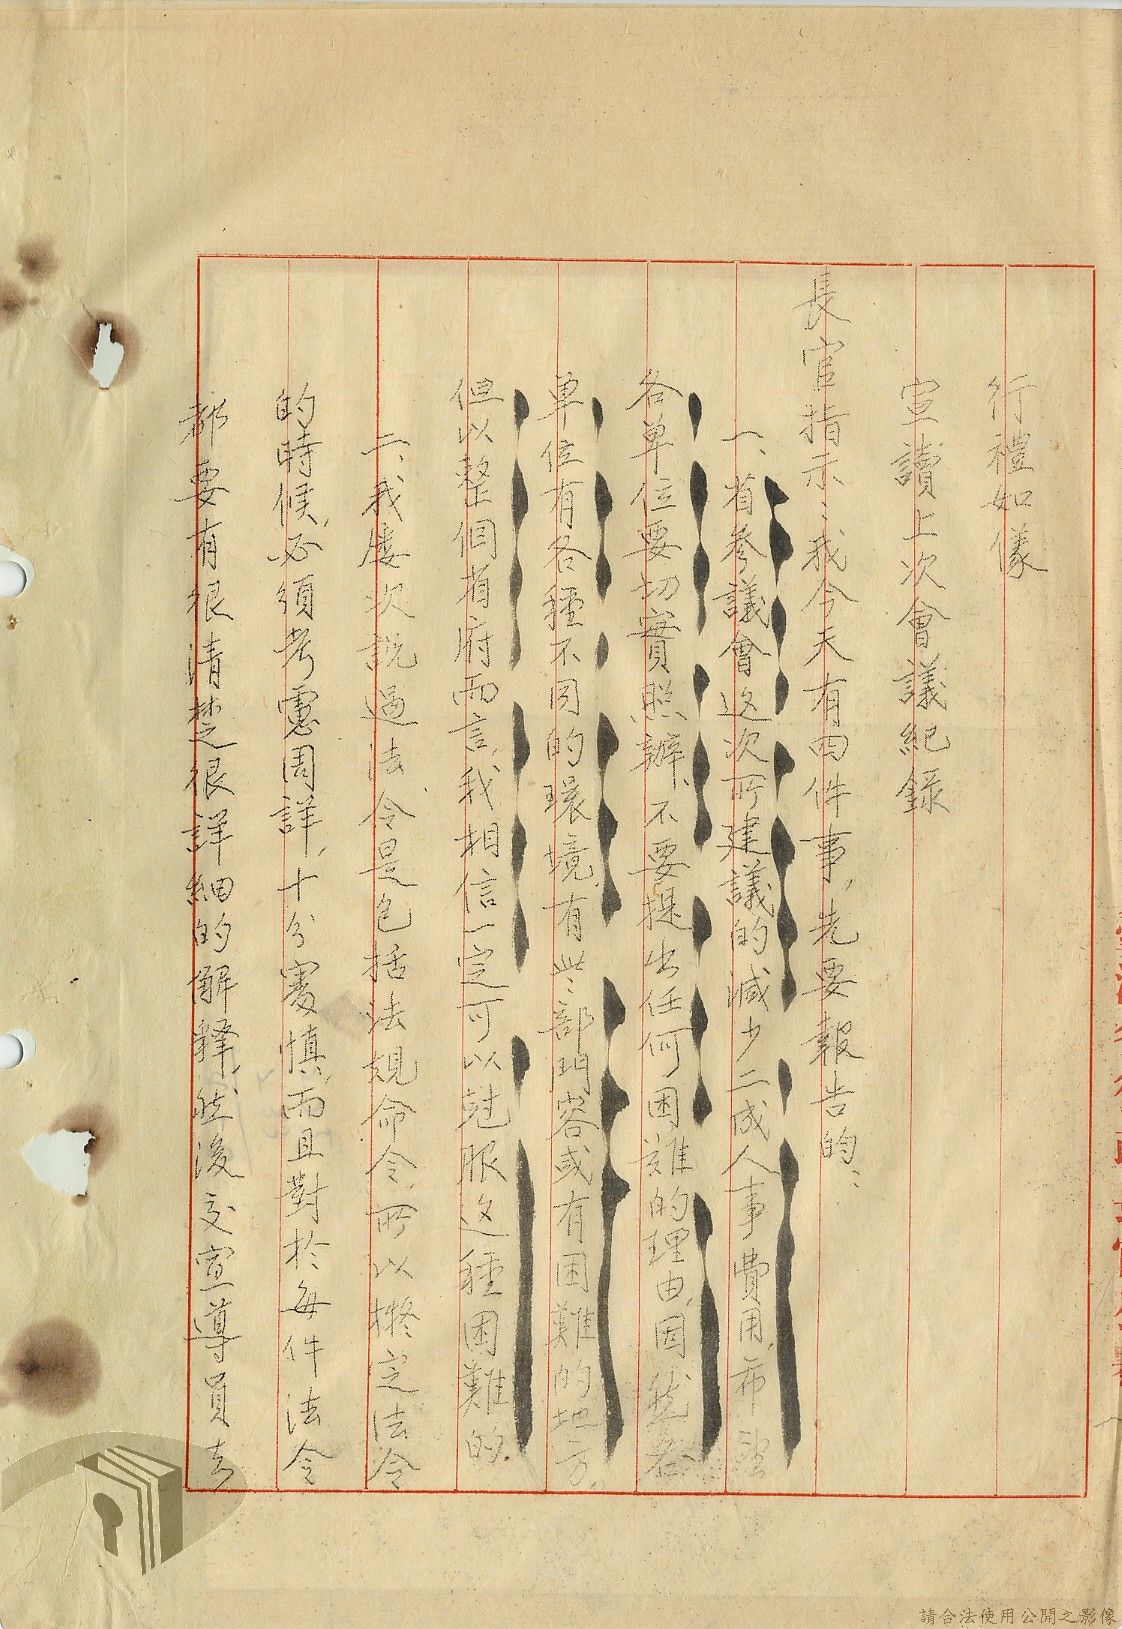 行禮如儀
宣讀上次會議紀錄
長官指示：我今天有四件事，先要報告的：
一、省參議會這次所建議的減少二成人事費用，希望
各單位要切實照辦、不要提出任何困難的理由，因然各
單位有各種不同的環境，有些部門容或有困難的地方，
但以整個省府而言，我相信一定可以尅服這種困難的。
二、我屢次說過法令是包括法規命令，所以擬定法令
的時候，必須考慮周詳，十分審慎，而且對於每件法令
都要有很清楚很詳細的解釋，然後交宣導員去
請合法使用公開之影像